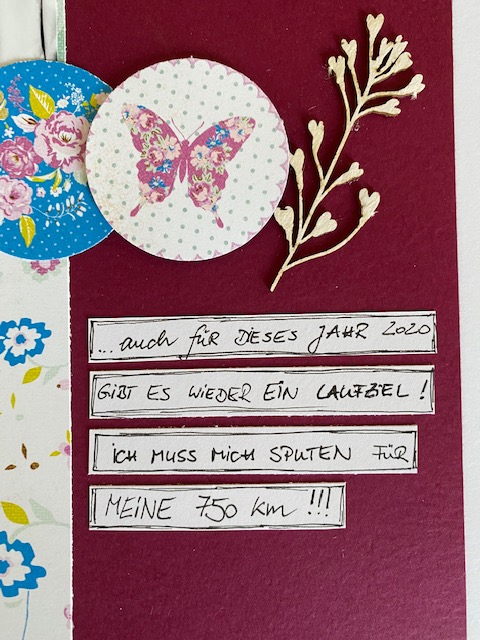 ...auch für DIESES JAHR 2020
GIBT ES WIEDER EIN LAUFZIEL !
ICH MUSS MICH SPUTEN FÜR
MEINE 750 km !!!